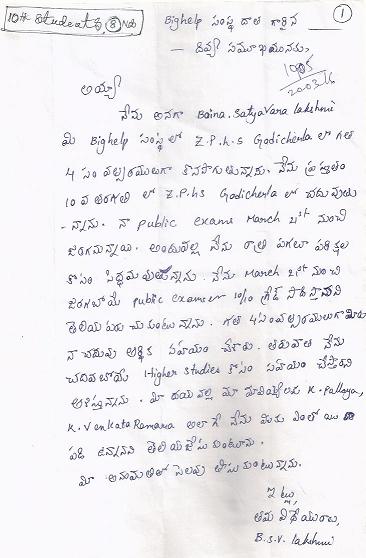 10th Students, 8 Nos
1
Bighelp సంస్థ దాత గారైన
- దివ్య సముఖమునకు,
అయ్యా
నేను అనగా Boina. Satyavara lakshmi
మీ Bighelp సంస్థలో Z.P.H.S Godicherla లో గత
4 సం వత్సరములుగా కొనసాగుతున్నాను. నేను ప్రస్తుతం
10 వ తరగతి లో Z.P.HS Godicherla లో చదువుతు
- న్నాను. నా public exams March 21st నుంచి
జరగనున్నాయి. అందువల్ల నేను రాత్రి పగలు పరీక్షల
కోసం సిద్ధమవుతున్నాను. నేను March 21st నుంచి
జరగబోయే public exams 10/10 గ్రేడ్ సాధిస్తానని
తెలియపరుచుకుంటున్నాను. గత 4 సంవత్సరములుగా మీరు
నా చదువు ఆర్థిక సహాయం చేశారు. తరువాత నేను
చదివబోయే Higher studies కోసం సహాయం చేస్తారని
ఆశిస్తున్నాను. మీ దయవల్ల మా K. Pallayya,
K. Venkata Ramana అలాగే నేను మీకు ఎంతో ఋణ
పడి ఉన్నానని తెలియజేసుకుంటూ.
మీ అనుమతితో సెలవు తీసుకుంటున్నాను.
ఇట్లు,
తమ విధేయురాలు,
B.S.V. lakshmi